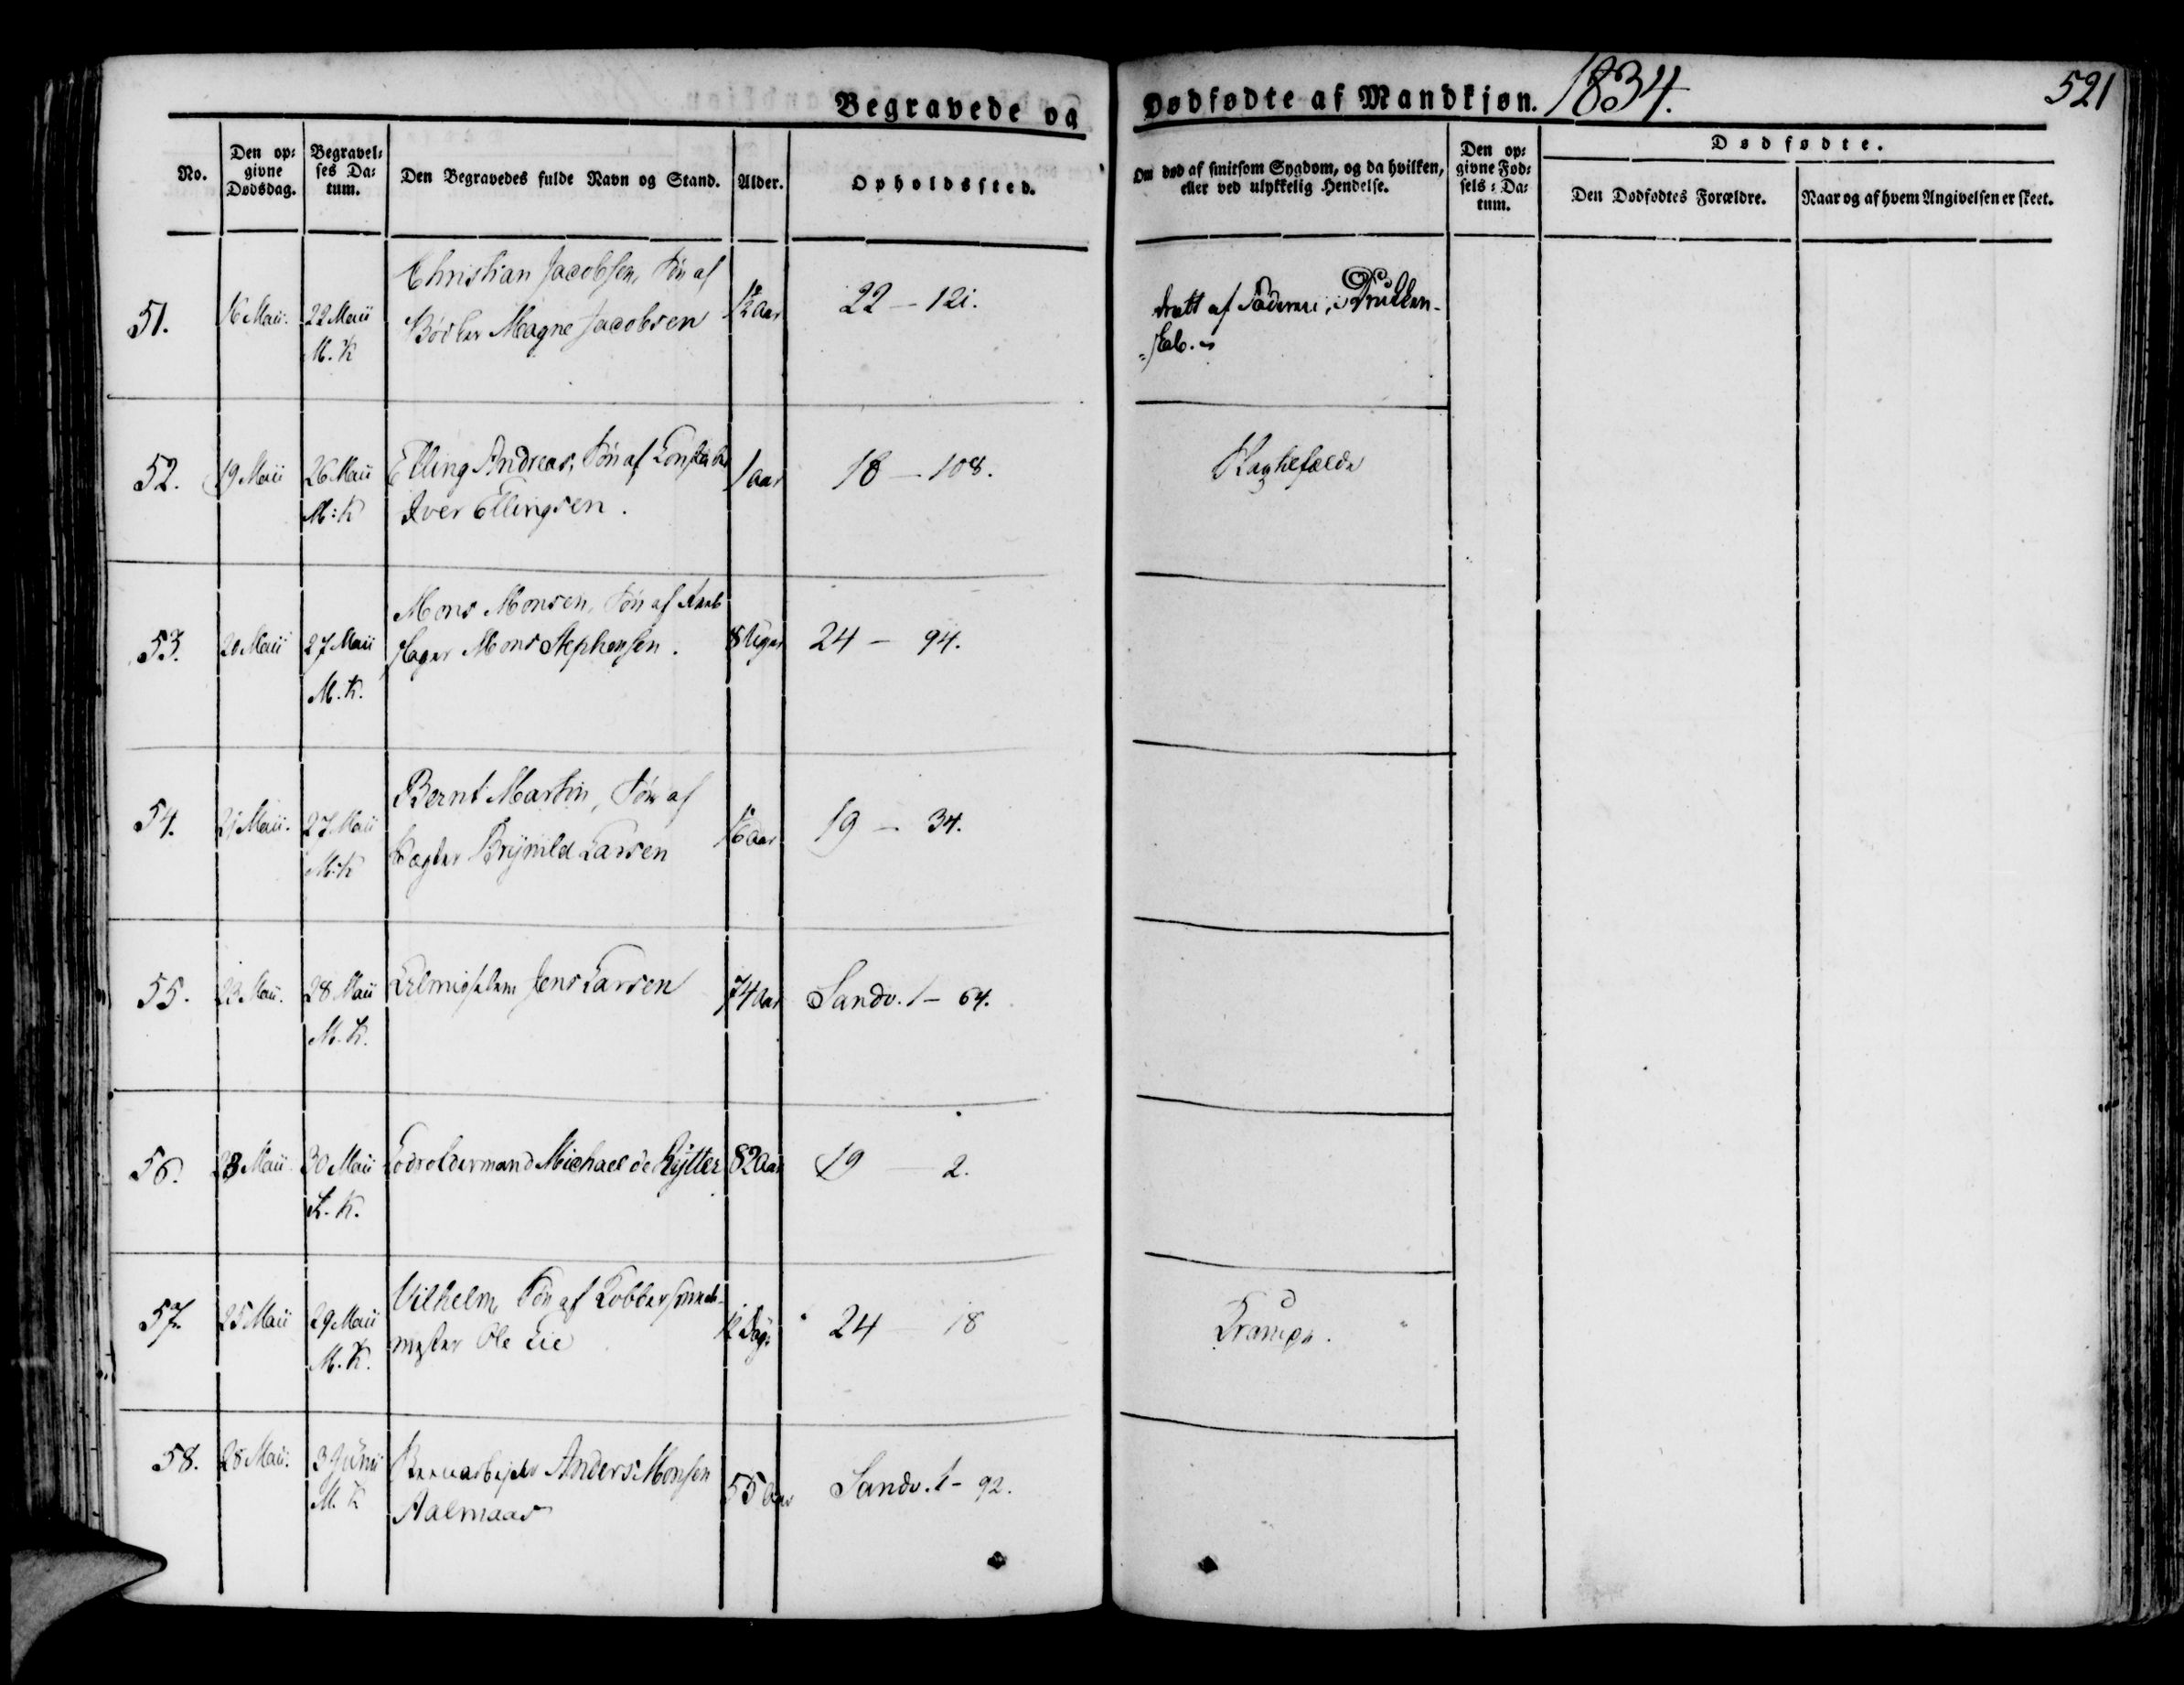 Begravede og Dødfødte af Mandkjøn. 1834. 521
No.
Den op-
givne
Dødsdag.
Begravel-
ses Da-
tum.
Den Begravedes fulde Navn og Stand.
Alder.
Opholdssted.
Om død af smitsom Sygdom, og da hvilken,
eller ved ulykkelig Hendelse.
Den op-
givne Fød-
sels-Da-
tum.
Dødfødte.
Den Dødfødtes Forældre.
Naar og af hvem Angivelsen er skeet.
51. 16 Maii. 22 Maii
M. K
Christian Jacobsen, Søn af
Bødker Magne Jacobsen
12 Aar
22 - 121.
dræbt af Faderen i Drukken-
skab.
52. 19 Maii 26 Maii
M: K
Elling Andreas, Søn af
Iver Ellingsen.
1 aar
18 - 108.
53. 20 Maii 27 Maii
M. K.
Mons Monsen, Søn af
Mons Stephensen.
8 Uger
24 - 94.
54. 21 Maii. 27 Maii
M: K
Bernt Martin, Søn af
Vægter Brynild Larsen
16 Aar
19 - 34.
55. 23 Maii. 28 Maii
M. K.
Jens Larsen
74 Aar
Sandv. 1 - 64.
56. 23 Maii 30 Maii
K. K.
Lodsoldermand Michael de Rytter
82 Aar
19 - 2.
57. 25 Maii 29 Maii
M. K.
Vilhelm, Søn af Kobbersmed-
mester Ole Lie
12 Dage
24 - 18
Krampe.
58. 28 Maii. 3 Junii
M. K
Anders Monsen
Aalmaas
55 Aar
Sandv. 1 - 92.